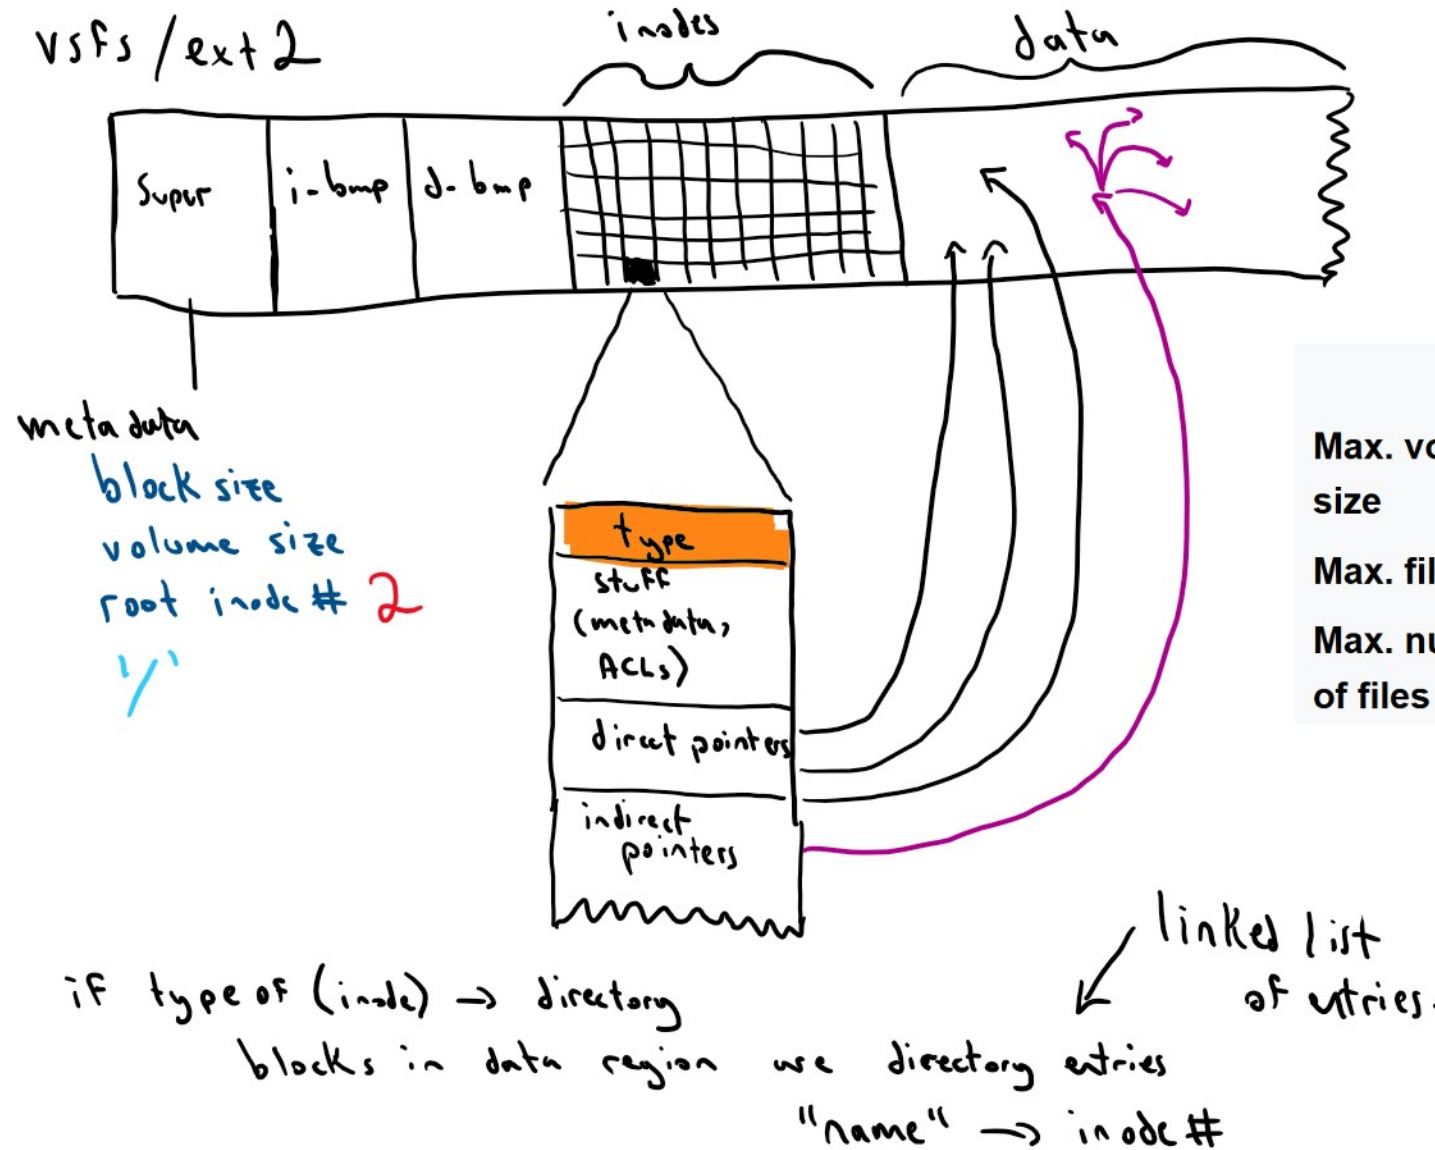 vsfs / ext2
inodes
data
Super
i-bmp
d-bmp
metadata
block size
volume size
root inode # 2
'/'
type
stuff
(metadata,
ACLs)
direct pointers
indirect
pointers
Max. vo
size
Max. fil
Max. nu
of files
linked list
of entries.
if type of (inode) → directory
blocks in data region are directory entries
"name" → inode #